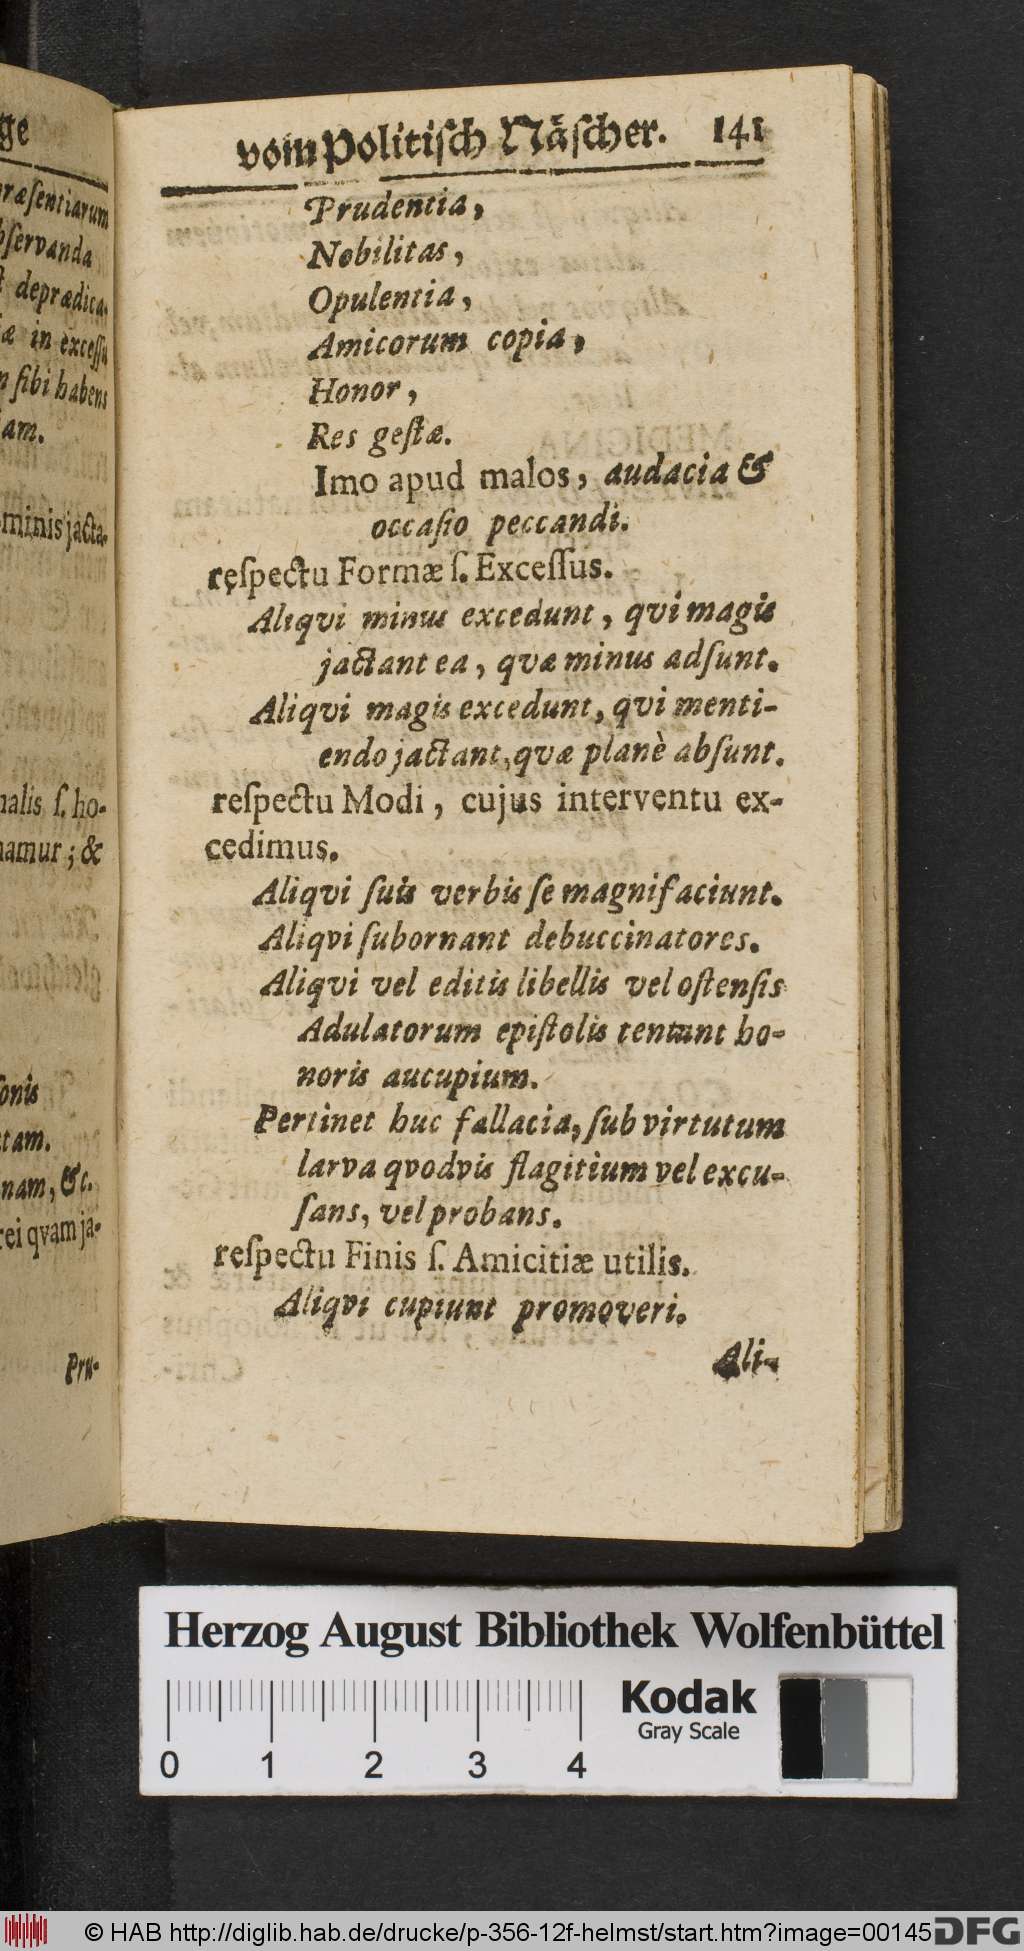 ge
præſentiarum
bſervanda
deprædica-
iæ in exceſſu
ſibi habens
am.
minis jacta-
nalis ſ. ho-
namur; &
ſonis
tam.
nam, &c.
rei qvam ja-
Pru-
vom Politiſch Näſcher. 141
Prudentia,
Nobilitas,
Opulentia,
Amicorum copia,
Honor,
Res geſtæ.
Imo apud malos, audacia &
occaſio peccandi.
reſpectu Formæ ſ. Exceſſus.
Aliqvi minus excedunt, qvi magis
jactant ea, qvæ minus adſunt.
Aliqvi magis excedunt, qvi menti-
endo jactant, qvæ planè abſunt.
reſpectu Modi, cujus interventu ex-
cedimus.
Aliqvi ſuis verbis ſe magnifaciunt.
Aliqvi ſubornant debuccinatores.
Aliqvi vel editis libellis vel oſtenſis
Adulatorum epiſtolis tentant ho-
noris aucupium.
Pertinet huc fallacia, ſub virtutum
larva qvodvis flagitium vel excu-
ſans, vel probans.
reſpectu Finis ſ. Amicitiæ utilis.
Aliqvi cupiunt promoveri.
Ali-
Herzog August Bibliothek Wolfenbüttel
Kodak
Gray Scale
0 1 2 3 4
© HAB http://diglib.hab.de/drucke/p-356-12f-helmst/start.htm?image=00145
DFG